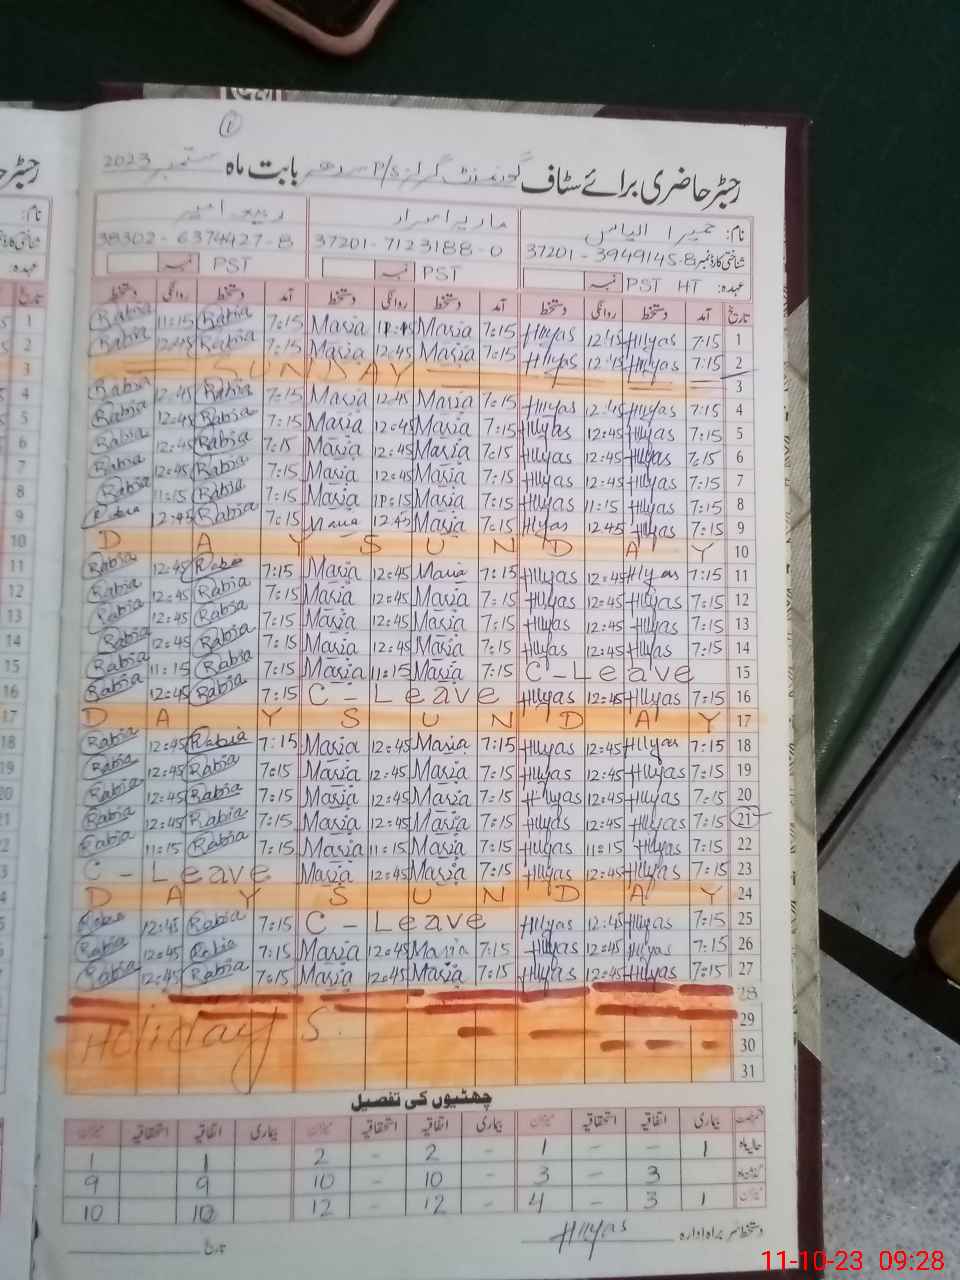 1
رجسٹر حاضری برائے سٹاف گورنمنٹ گرلز P/S بابت ماہ ستمبر 2023
نام: حمیرا الیاس ماریہ اسرار ربیعہ امیر
شناختی کارڈ نمبر 37201-3949145-8 37201-7123188-0 38302-6374427-8
عہدہ: PST HT نمبر PST نمبر PST نمبر
تاریخ آمد دستخط روانگی دستخط آمد دستخط روانگی دستخط آمد دستخط روانگی دستخط
1 7:15 HIlyas 12:45 HIlyas 7:15 Maria 11:15 Maria 7:15 Rabia 11:15 Rabia
2 7:15 HIlyas 12:45 HIlyas 7:15 Maria 12:45 Maria 7:15 Rabia 12:45 Rabia
3 SUNDAY
4 7:15 HIlyas 12:45 HIlyas 7:15 Maria 12:45 Maria 7:15 Rabia 12:45 Rabia
5 7:15 HIlyas 12:45 HIlyas 7:15 Maria 12:45 Maria 7:15 Rabia 12:45 Rabia
6 7:15 HIlyas 12:45 HIlyas 7:15 Maria 12:45 Maria 7:15 Rabia 12:45 Rabia
7 7:15 HIlyas 12:45 HIlyas 7:15 Maria 12:45 Maria 7:15 Rabia 12:45 Rabia
8 7:15 HIlyas 11:15 HIlyas 7:15 Maria 11:15 Maria 7:15 Rabia 11:15 Rabia
9 7:15 HIlyas 12:45 HIlyas 7:15 Maria 12:45 Maria 7:15 Rabia 12:45 Rabia
10 D A Y S U N D A Y
11 7:15 HIlyas 12:45 HIlyas 7:15 Maria 12:45 Maria 7:15 Rabia 12:45 Rabia
12 7:15 HIlyas 12:45 HIlyas 7:15 Maria 12:45 Maria 7:15 Rabia 12:45 Rabia
13 7:15 HIlyas 12:45 HIlyas 7:15 Maria 12:45 Maria 7:15 Rabia 12:45 Rabia
14 7:15 HIlyas 12:45 HIlyas 7:15 Maria 12:45 Maria 7:15 Rabia 12:45 Rabia
15 C-Leave 7:15 Maria 11:15 Maria 7:15 Rabia 11:15 Rabia
16 7:15 HIlyas 12:45 HIlyas C-Leave 7:15 Rabia 12:45 Rabia
17 D A Y S U N D A Y
18 7:15 HIlyas 12:45 HIlyas 7:15 Maria 12:45 Maria 7:15 Rabia 12:45 Rabia
19 7:15 HIlyas 12:45 HIlyas 7:15 Maria 12:45 Maria 7:15 Rabia 12:45 Rabia
20 7:15 HIlyas 12:45 HIlyas 7:15 Maria 12:45 Maria 7:15 Rabia 12:45 Rabia
21 7:15 HIlyas 12:45 HIlyas 7:15 Maria 12:45 Maria 7:15 Rabia 12:45 Rabia
22 7:15 HIlyas 11:15 HIlyas 7:15 Maria 11:15 Maria 7:15 Rabia 11:15 Rabia
23 7:15 HIlyas 12:45 HIlyas 7:15 Maria 12:45 Maria C-Leave
24 D A Y S U N D A Y
25 7:15 HIlyas 12:45 HIlyas C-Leave 7:15 Rabia 12:45 Rabia
26 7:15 HIlyas 12:45 HIlyas 7:15 Maria 12:45 Maria 7:15 Rabia 12:45 Rabia
27 7:15 HIlyas 12:45 HIlyas 7:15 Maria 12:45 Maria 7:15 Rabia 12:45 Rabia
28
29 Holidays
30
31
چھٹیوں کی تفصیل
بیماری اتفاقیہ استحقاقیہ میزان بیماری اتفاقیہ استحقاقیہ میزان بیماری اتفاقیہ استحقاقیہ میزان
1 - - 1 - 2 - 2 1 1
3 - 3 - 10 - 10 9 9
میزان 1 3 - 4 - 12 - 12 10 10
دستخط سربراہ ادارہ HIlyas تاریخ
11-10-23 09:28